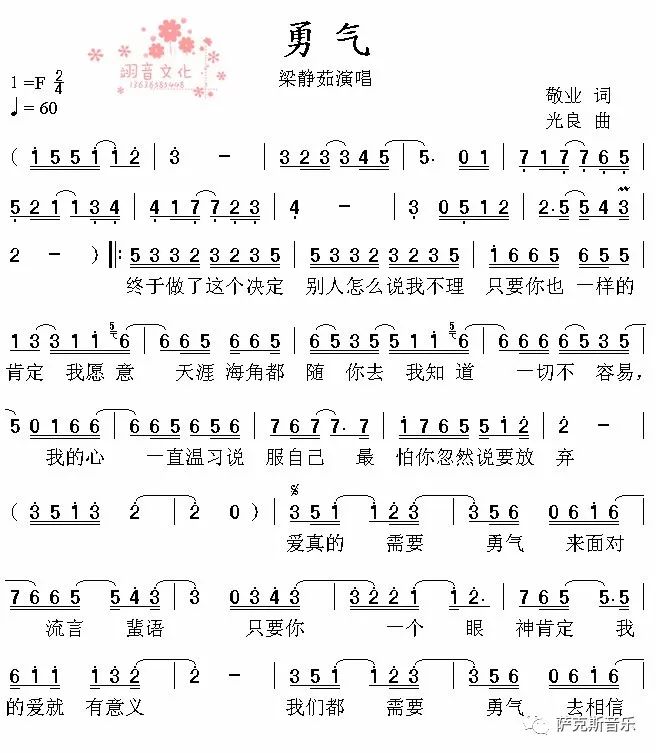 勇气
翊音文化
13636585448
梁静茹演唱
1=F 2/4
♩=60
敬业 词
光良 曲
( 1 5 5 1 1 2 | 3 － | 3 2 3 3 4 5 | 5. 0 1 | 7 1 7 7 6 5 |
5 2 1 1 3 4 | 4 1 7 7 2 3 | 4 － | 3 0 5 1 2 | 2. 5 5 4 3 |
2 － ) |: 5 3 3 2 3 2 3 5 | 5 3 3 2 3 2 3 5 | 1 6 6 5 6 6 5 |
终于做了这个决定 别人怎么说我不理 只要你也 一样的
1 3 3 1 1 6 | 6 6 5 6 6 5 | 6 5 3 5 5 1 1 6 | 6 6 6 5 6 5 3 |
肯定 我愿意 天涯 海角都 随 你去 我知道 一切不 容易，
5 0 1 6 6 | 6 5 6 5 6 5 | 7 6 7 7. 7 | 1 7 6 5 5 1 2 | 2 － |
我的心 一直温习说 服自己 最 怕你忽然说要放 弃
( 3 5 1 3 2 | 2 0 ) | 3 5 1 1 2 3 | 3 5 6 0 6 1 6 |
爱真的 需要 勇气 来面对
7 6 6 5 5 4 3 | 3 0 3 4 3 | 3 2 2 1 1 2. | 7 6 5 5. 5 |
流言 蜚语 只要你 一个 眼 神肯定 我
6 1 1 1 3 2 | 2 3 5 1 1 2 3 | 3 5 6 0 6 1 6 |
的爱就 有意义 我们都 需要 勇气 去相信
萨克斯音乐